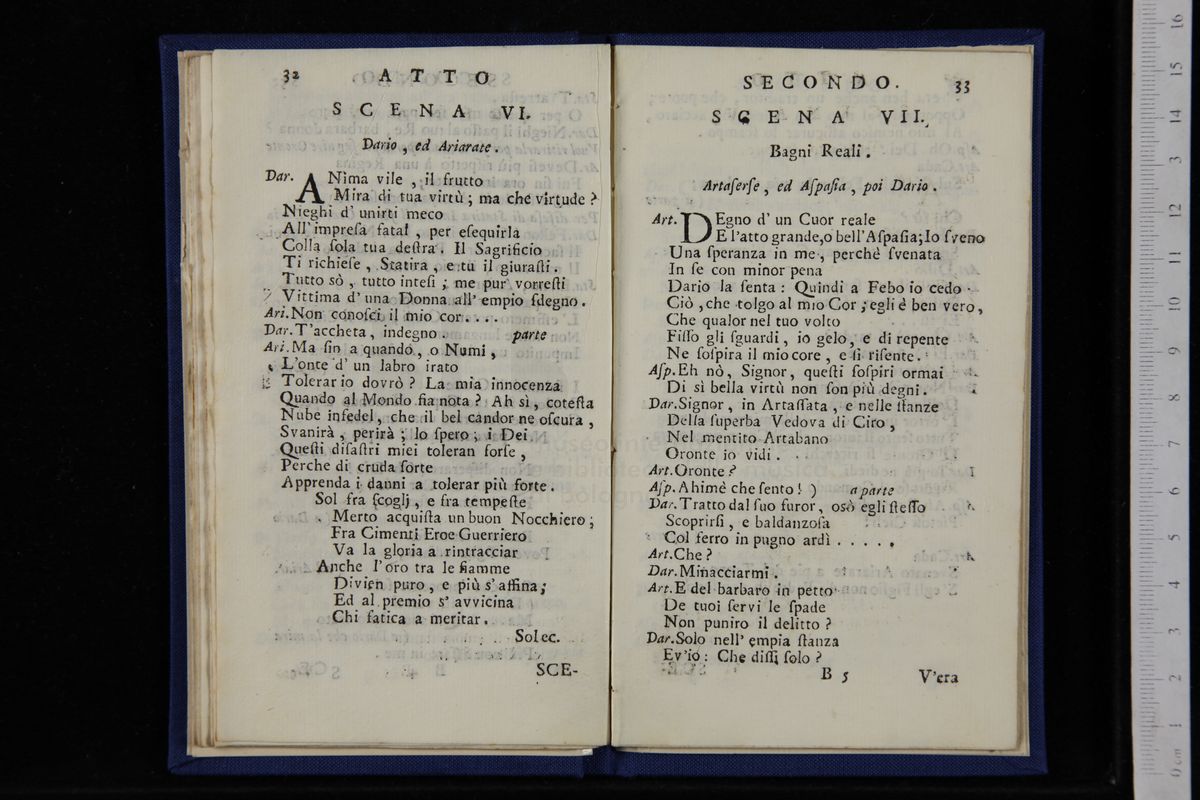 32 ATTO
SCENA VI.
Dario, ed Ariarate.
Dar. ANima vile, il frutto
Mira di tua virtù; ma che virtude?
Nieghi d' unirti meco
All' impreſa fatal, per eſequirla
Colla ſola tua deſtra. Il Sagrificio
Ti richieſe, Statira, e tu il giuraſti.
Tutto sò, tutto inteſi; me pur vorreſti
Vittima d' una Donna all' empio ſdegno.
Ari. Non conoſci il mio cor....
Dar. T'accheta, indegno. parte
Ari. Ma fin a quando, o Numi,
L'onte d' un labro irato
Tolerar io dovrò? La mia innocenza
Quando al Mondo fia nota? Ah sì, coteſta
Nube infedel, che il bel candor ne oſcura,
Svanirà, perirà; lo ſpero; i Dei
Queſti diſaſtri miei toleran forſe,
Perche di cruda ſorte
Apprenda i danni a tolerar più forte.
Sol fra ſcoglj, e fra tempeſte
Merto acquiſta un buon Nocchiero;
Fra Cimenti Eroe Guerriero
Va la gloria a rintracciar
Anche l'oro tra le fiamme
Divien puro, e più s' affina;
Ed al premio s' avvicina
Chi fatica a meritar.
Sol ec.
SCE-
SECONDO. 33
SCENA VII.
Bagni Reali.
Artaſerſe, ed Aſpaſia, poi Dario.
Art. DEgno d' un Cuor reale
E l'atto grande, o bell' Aſpaſia; Io ſveno
Una ſperanza in me, perchè ſvenata
In ſe con minor pena
Dario la ſenta: Quindi a Febo io cedo
Ciò, che tolgo al mio Cor; egli è ben vero,
Che qualor nel tuo volto
Fiſſo gli ſguardi, io gelo, e di repente
Ne ſoſpira il mio core, e ſi riſente.
Aſp. Eh nò, Signor, queſti ſoſpiri ormai
Di sì bella virtù non ſon più degni.
Dar. Signor, in Artaſſata, e nelle ſtanze
Della ſuperba Vedova di Ciro,
Nel mentito Artabano
Oronte io vidi.
Art. Oronte?
Aſp. Ahimè che ſento! ) a parte
Dar. Tratto dal ſuo furor, osò egli ſteſſo
Scoprirſi, e baldanzoſa
Col ferro in pugno ardì .....
Art. Che?
Dar. Minacciarmi.
Art. E del barbaro in petto
De tuoi ſervi le ſpade
Non puniro il delitto?
Dar. Solo nell' empia ſtanza
Ev'io: Che diſſi ſolo?
B 5 V'era
16
15
14
13
12
11
10
9
8
7
6
5
4
3
2
1
0 cm